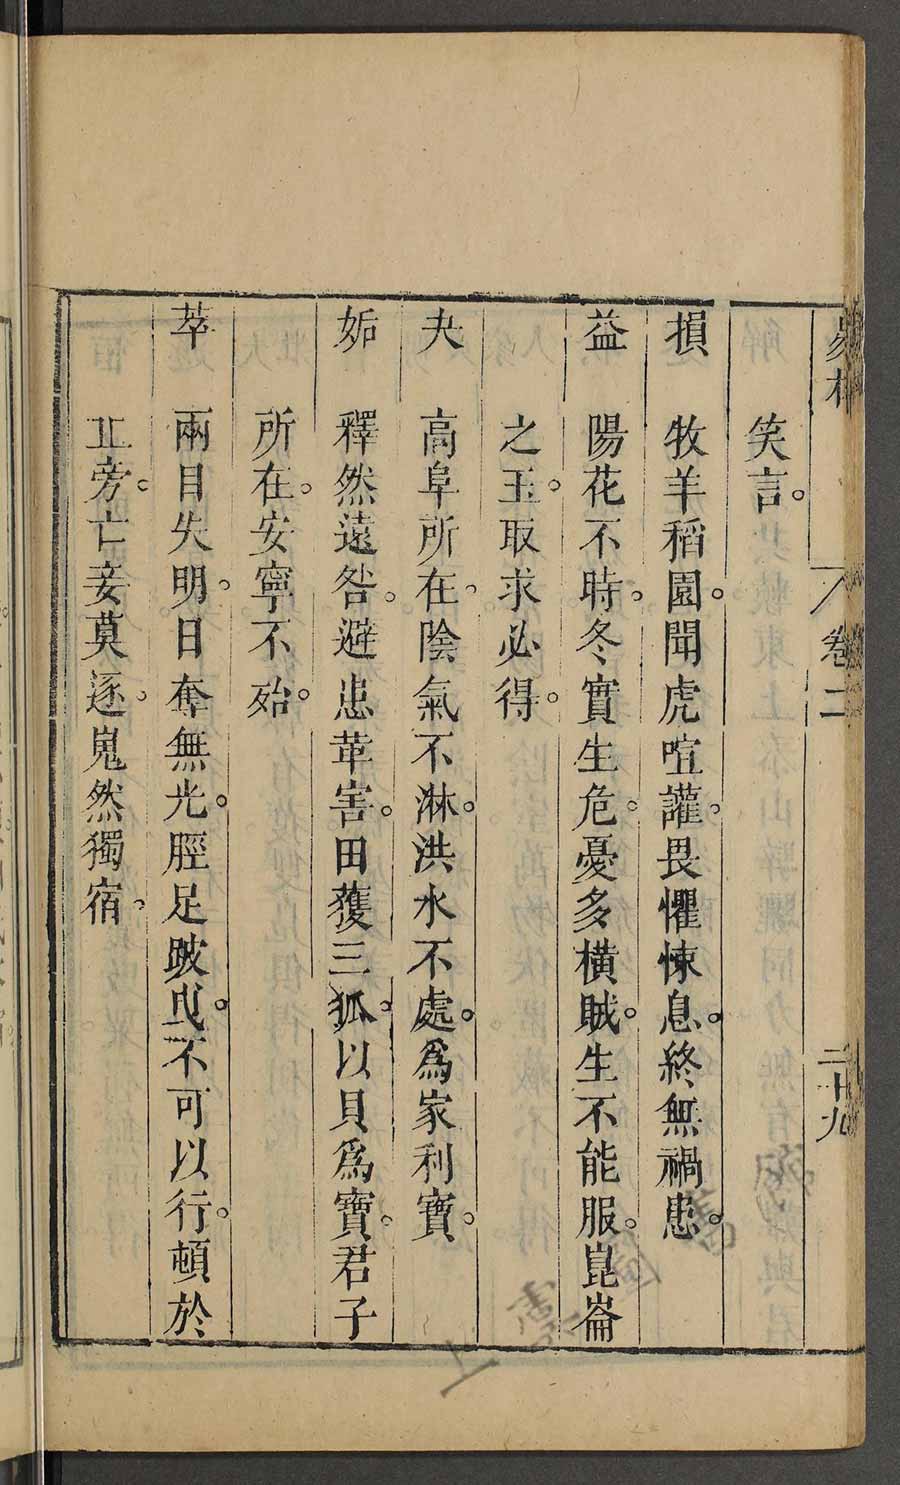 笑言。
損　牧羊稻園。聞虎喧讙。畏懼悚息。終無禍患。
益　陽花不時。冬實生危。憂多橫賊。生不能服。崑崙
之玉。取求必得。
夬　高阜所在。陰氣不淋。洪水不處。爲家利寶。
姤　釋然遠咎。避患革害。田獲三狐。以貝爲寶。君子
所在。安寧不殆。
萃　兩目失明。日奪無光。脛足跛曳。不可以行。頓於
丘旁。亡妾莫逐。嵬然獨宿。
卷二
二十九